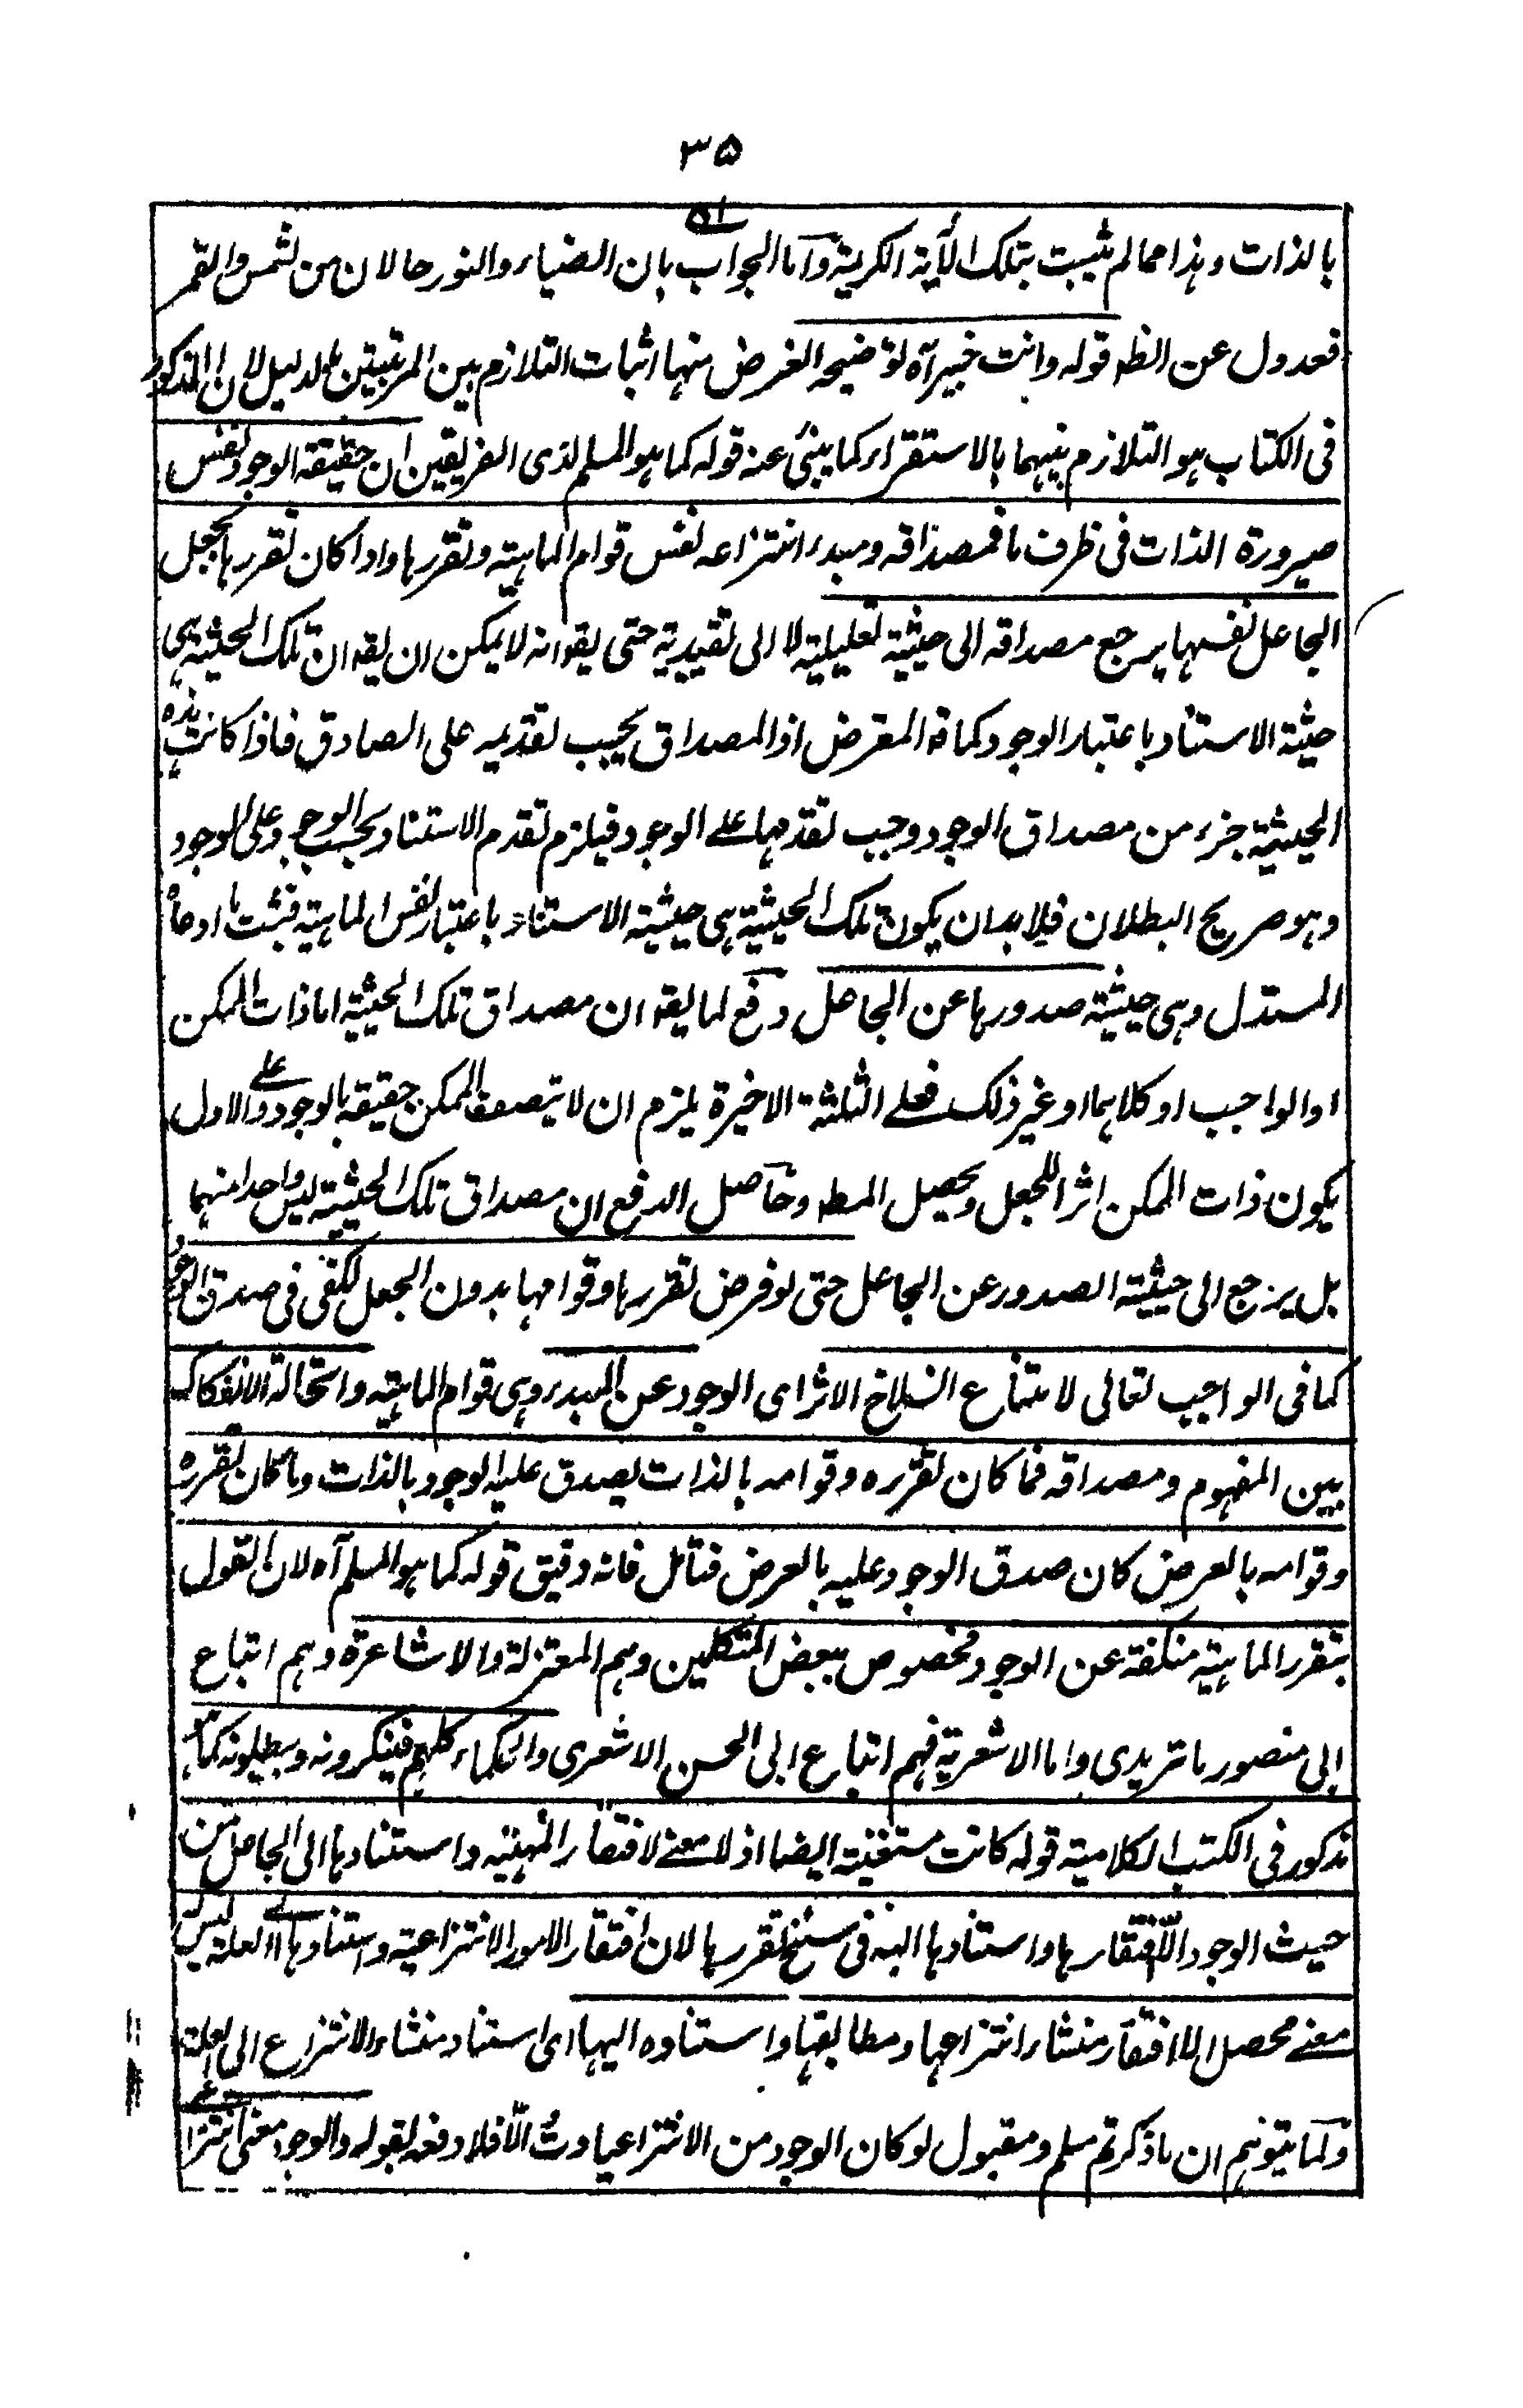 ٣٥
بالذات وهذا مما لم يثبت بتلك الآية الكريمة واما الجواب بان الضياء والنور حالان من الشمس والقمر
فعدول عن الظ قوله وانت خبير آه توضيحه الغرض منها اثبات التلازم بين المرتبتين بالدليل لان المذكور
فى الكتاب هو التلازم بينهما بالاستقراء كما ينبئ عنه قوله كما هو المسلم لدى الفريقين ان حقيقة الوجود نفس
صيرورة الذات فى ظرف ما فمصداقه ومبدء انتزاعه نفس قوام الماهية وتقررها واذا كان تقررها بجعل
الجاعل نفسها يرجع مصداقه الى حيثية تعليلية لا الى تقييدية حتى يقو انه لا يمكن ان يقو ان تلك الحيثية هى
حيثية الاستناد باعتبار الوجود كما قو المعترض اذ المصداق يجب تقديمه على الصادق فاذا كانت هذه
الحيثية جزء من مصداق الوجود وجب تقدمها على الوجود فيلزم تقدم الاستناد بحسب الوجود على الوجود
وهو صريح البطلان فلابد ان يكون تلك الحيثية هى حيثية الاستناد باعتبار نفس الماهية فثبت ما ادعاه
المستدل وهى حيثية صدورها عن الجاعل دفع لما يقو ان مصداق تلك الحيثية اما ذات الممكن
او الواجب او كلاهما او غير ذلك فعلى الثلثة الاخيرة يلزم ان لا يتصف الممكن حقيقة بالوجود وعلى الاول
يكون ذات الممكن اثر الجعل ويحصل المط وحاصل الدفع ان مصداق تلك الحيثية ليس واحدا منهما
بل يرجع الى حيثية الصدور عن الجاعل حتى لو فرض تقررها وقوامها بدون الجعل لكفى فى صدق الوجود
كما فى الواجب تعالى لامتناع انسلاخ الاثر اى الوجود عن المبدء وهى قوام الماهية واستحالة الانفكاك
بين المفهوم ومصداقه فما كان تقرره وقوامه بالذات يصدق عليه الوجود بالذات وما كان تقرره
وقوامه بالعرض كان صدق الوجود عليه بالعرض فتأمل فانه دقيق قوله كما هو المسلم آه لان القول
بتقرر الماهية منكفة عن الوجود مخصوص ببعض المتكلمين وهم المعتزلة والاشاعرة وهم اتباع
ابى منصور ماتريدى واما الاشعرية فهم اتباع ابى الحسن الاشعرى والحكماء كلهم فينكرونه ويبطلونه كما هو
مذكور فى الكتب الكلامية قوله كانت مستغنية ايضا اذ لا معنى لافتقار المهية واستنادها الى الجاعل من
حيث الوجود الا افتقارها واستنادها اليه فى سنخ تقررها لان افتقار الامور الانتزاعية واستنادها الى العلة ليس له
معنى محصل الا افتقار منشاء انتزاعها ومطابقها واستناده اليها اى استناد منشاء الانتزاع الى العلة
ولما يتوهم ان ما ذكرتم مسلم ومقبول لو كان الوجود من الانتزاعيات والا فلا دفعه بقوله والوجود معنى انتزاعى